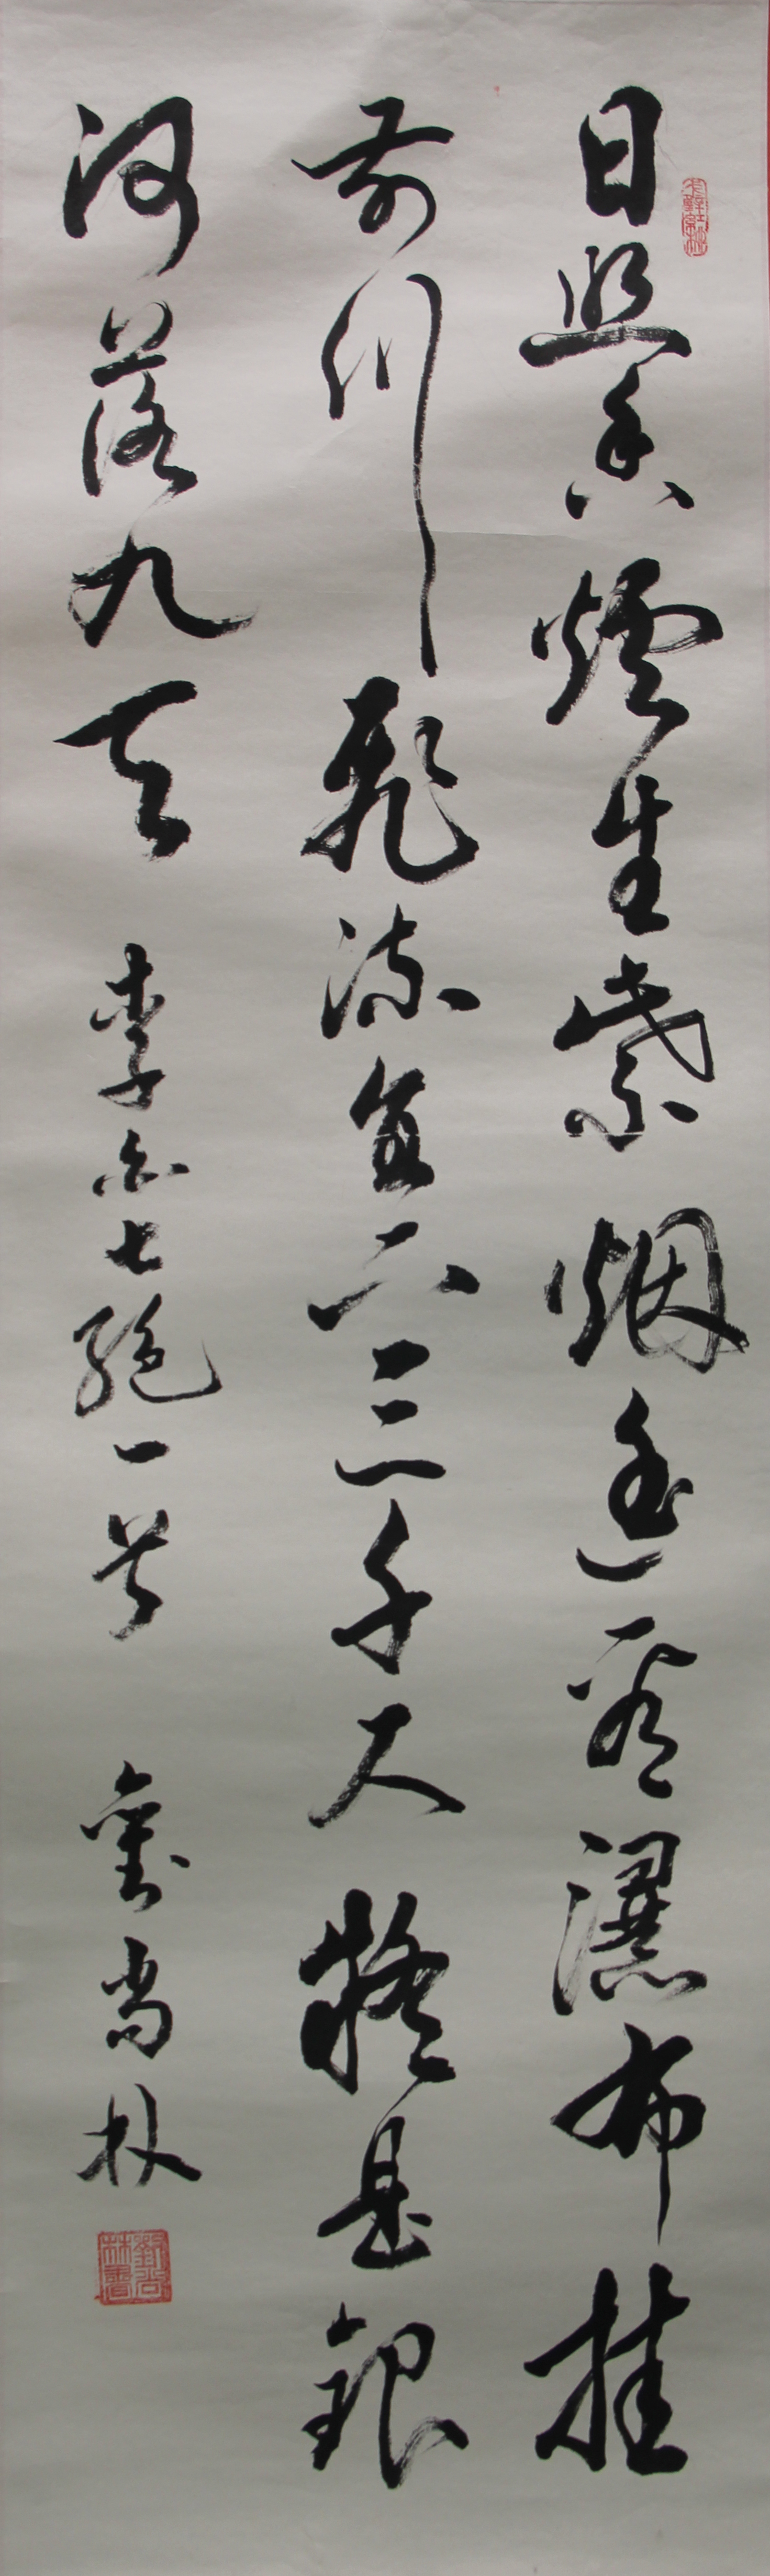 日照香炉生紫烟遥看瀑布挂
前川飛流直下三千尺疑是銀
河落九天 李白七绝一首 劉尚林
劉尚林書